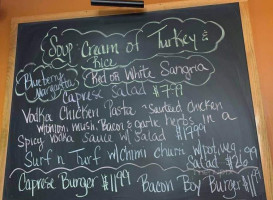 Soup: Cream of Turkey &
Rice
Blueberry
Margaritas
Red or White Sangria
Caprese Salad $7.99
Vodka Chicken Pasta - Sauteed chicken
w/onion, mush, Bacon & garlic herbs in a
Spicy Vodka sauce w/ Salad $17.99
Surf n turf w/chimi churri w/pot, veg,
Salad $26.99
Caprese Burger $11.99
Bacon Boy Burger $11.99